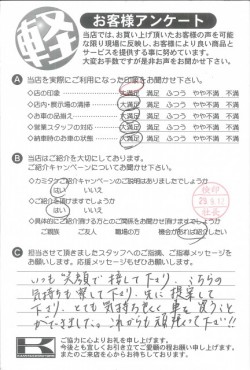 軽
お客様アンケート
当店では、お買い上げ頂いたお客様の声を可能
な限り現場に反映し、お客様により良い商品と
サービスを提供する事に努めています。
大変お手数ですが是非お声をお聞かせ下さい。
A 当店を実際にご利用になった印象をお聞かせ下さい。
◇店の印象 大満足 満足 ふつう やや不満 不満
◇店内・展示場の清掃 大満足 満足 ふつう やや不満 不満
◇お車の品揃え 大満足 満足 ふつう やや不満 不満
◇営業スタッフの対応 大満足 満足 ふつう やや不満 不満
◇納車時のお車の状態 大満足 満足 ふつう やや不満 不満
B 当店はご紹介を大切にしております。
ご紹介キャンペーンについてお聞かせ下さい。
◇カミタケご紹介キャンペーンのご説明はありましたでしょうか
はい いいえ
◇ご紹介を頂けますでしょうか
はい いいえ
◇具体的にご紹介頂ける方とのご関係をお聞かせ頂けますでしょうか
ご親族 ご友人 職場の方 機会があれば紹介したい
C 担当させて頂きましたスタッフへのご指摘、ご指導メッセージを
お願いします。応援メッセージもぜひお願いします。
いつも笑顔で接して下さり、こちらの
気持ちも察して下さり、先に提案して
下さり、とても気持ち良く車を買うこと
ができました。これからも頑張って下さい!!
K
ご協力に心よりお礼を申し上げます。
今後とも宜しくお引き立てご愛顧の程お願い申し上げます。
またのご来店を心からお待ちしております。